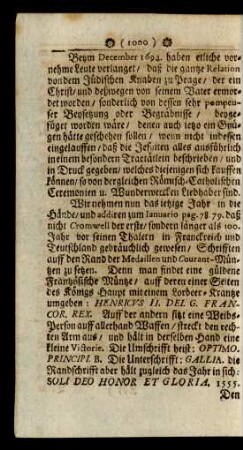 ( 1000 )
Beym December 1694. haben etliche vor-
nehme Leute verlanget/ daß die gantze Relation
von dem Jüdischen Knaben zu Prage/ der ein
Christ/ und deßwegen von seinem Vater ermor-
det worden/ sonderlich von dessen sehr pompeu-
ser Beysetzung oder Begräbnisse/ beyge-
füget worden wäre/ denen auch ietzo ein Gnü-
gen hätte geschehen sollen/ wenn nicht indessen
eingelauffen/ daß die Jesuiten alles ausführlich
in einem besondern Tractätlein beschrieben/ und
in Druck gegeben/ welches diejenigen sich kauffen
können/ so von dergleichen Römisch-Catholischen
Ceremonien u. Wunderwercken Liebhaber sind.
Wir nehmen nun das ietzige Jahr in die
Hände/ und addiren zum Ianuario pag. 78 79. daß
nicht Cromwell der erste/ sondern länger als 100.
Jahr vor seinen Thalern in Franckreich und
Teutschland gebräuchlich gewesen/ Schrifften
auff den Rand der Medaillen und Courant-Mün-
tzen zu setzen. Denn man findet eine güldene
Frantzösische Müntze/ auff deren einer Seiten
des Königs Haupt mit einem Lorbeer-Krantze
umgeben: HENRICVS II. DEI. G. FRAN-
COR. REX. Auff der andern sitzt eine Weibs-
Person auff allerhand Waffen/ streckt den rech-
ten Arm aus/ und hält in derselben Hand eine
kleine Victorie. Die Umschrifft heist: OPTIMO.
PRINCIPI. B. Die Unterschrifft: GALLIA. die
Randschrifft aber hält zugleich das Jahr in sich:
SOLI DEO HONOR ET GLORIA. 1555.
Den